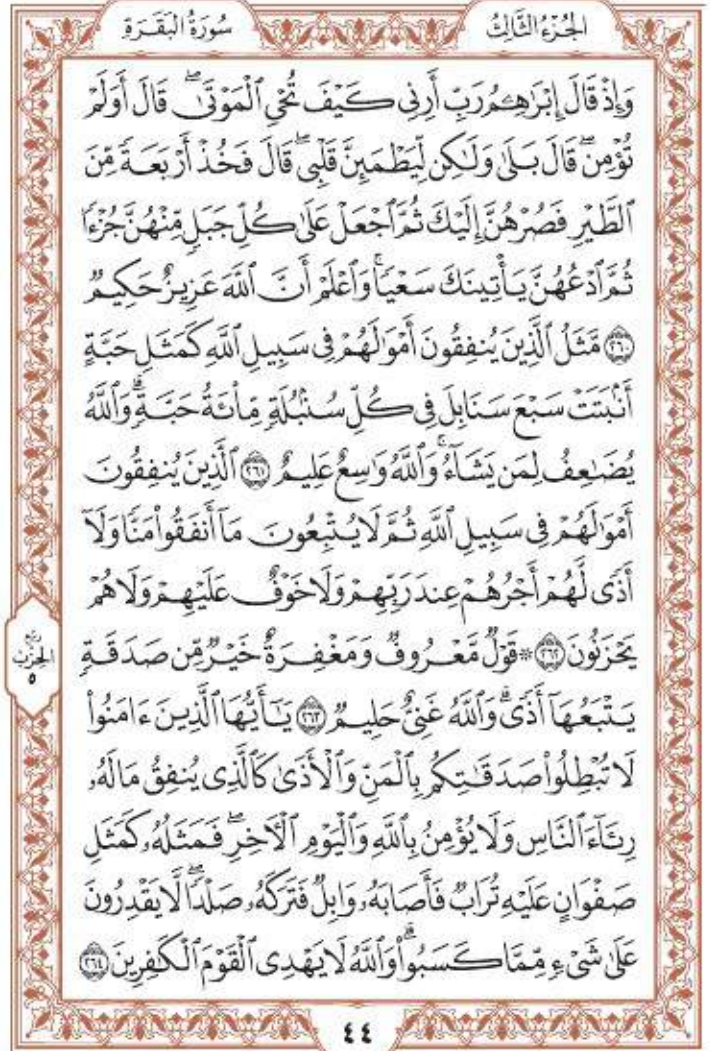 الجُزْءُ الثَّالِثُ
سُورَةُ البَقَرَةِ
وَإِذْ قَالَ إِبْرَٰهِـۧمُ رَبِّ أَرِنِى كَيْفَ تُحْىِ ٱلْمَوْتَىٰ ۖ قَالَ أَوَلَمْ
تُؤْمِن ۖ قَالَ بَلَىٰ وَلَـٰكِن لِّيَطْمَئِنَّ قَلْبِى ۖ قَالَ فَخُذْ أَرْبَعَةً مِّنَ
ٱلطَّيْرِ فَصُرْهُنَّ إِلَيْكَ ثُمَّ ٱجْعَلْ عَلَىٰ كُلِّ جَبَلٍ مِّنْهُنَّ جُزْءًا
ثُمَّ ٱدْعُهُنَّ يَأْتِينَكَ سَعْيًا ۚ وَٱعْلَمْ أَنَّ ٱللَّهَ عَزِيزٌ حَكِيمٌ
٢٦٠ مَّثَلُ ٱلَّذِينَ يُنفِقُونَ أَمْوَٰلَهُمْ فِى سَبِيلِ ٱللَّهِ كَمَثَلِ حَبَّةٍ
أَنۢبَتَتْ سَبْعَ سَنَابِلَ فِى كُلِّ سُنۢبُلَةٍ مِّا۟ئَةُ حَبَّةٍ ۗ وَٱللَّهُ
يُضَـٰعِفُ لِمَن يَشَآءُ ۗ وَٱللَّهُ وَٰسِعٌ عَلِيمٌ ٢٦١ ٱلَّذِينَ يُنفِقُونَ
أَمْوَٰلَهُمْ فِى سَبِيلِ ٱللَّهِ ثُمَّ لَا يُتْبِعُونَ مَآ أَنفَقُوا۟ مَنًّا وَلَآ
أَذًى لَّهُمْ أَجْرُهُمْ عِندَ رَبِّهِمْ وَلَا خَوْفٌ عَلَيْهِمْ وَلَا هُمْ
يَحْزَنُونَ ٢٦٢ ۞ قَوْلٌ مَّعْرُوفٌ وَمَغْفِرَةٌ خَيْرٌ مِّن صَدَقَةٍ
يَتْبَعُهَآ أَذًى ۗ وَٱللَّهُ غَنِىٌّ حَلِيمٌ ٢٦٣ يَـٰٓأَيُّهَا ٱلَّذِينَ ءَامَنُوا۟
لَا تُبْطِلُوا۟ صَدَقَـٰتِكُم بِٱلْمَنِّ وَٱلْأَذَىٰ كَٱلَّذِى يُنفِقُ مَالَهُۥ
رِئَآءَ ٱلنَّاسِ وَلَا يُؤْمِنُ بِٱللَّهِ وَٱلْيَوْمِ ٱلْـَٔاخِرِ ۖ فَمَثَلُهُۥ كَمَثَلِ
صَفْوَانٍ عَلَيْهِ تُرَابٌ فَأَصَابَهُۥ وَابِلٌ فَتَرَكَهُۥ صَلْدًا ۖ لَّا يَقْدِرُونَ
عَلَىٰ شَىْءٍ مِّمَّا كَسَبُوا۟ ۗ وَٱللَّهُ لَا يَهْدِى ٱلْقَوْمَ ٱلْكَـٰفِرِينَ ٢٦٤
ربع
الحزب
٥
٤٤